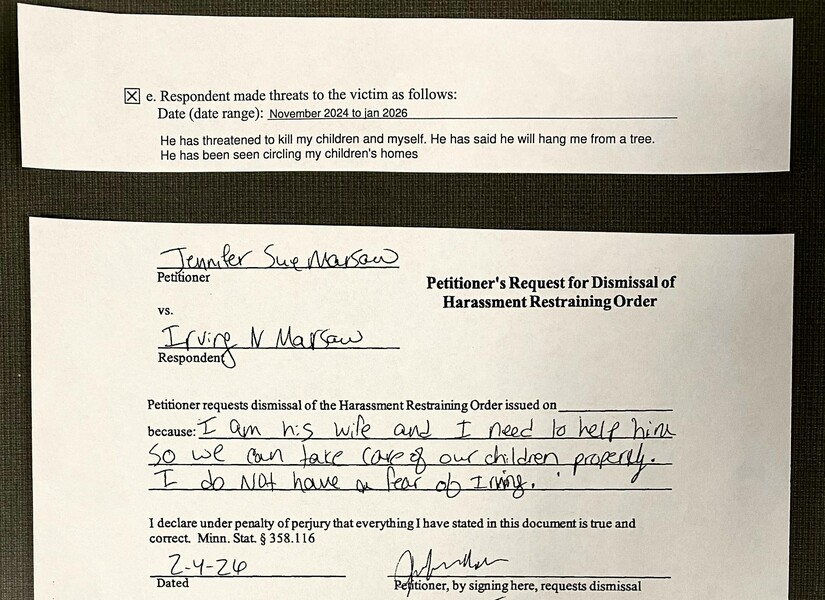 ☒ e. Respondent made threats to the victim as follows:
Date (date range): November 2024 to jan 2026
He has threatened to kill my children and myself. He has said he will hang me from a tree.
He has been seen circling my children's homes
Jennifer Sue Marsaw
Petitioner
Petitioner's Request for Dismissal of
Harassment Restraining Order
vs.
Irving N Marsaw
Respondent
Petitioner requests dismissal of the Harassment Restraining Order issued on
because: I am his wife and I need to help him
so we can take care of our children properly.
I do NOt have a fear of Irving.
I declare under penalty of perjury that everything I have stated in this document is true and
correct. Minn. Stat. § 358.116
2-4-26
Dated
Petitioner, by signing here, requests dismissal